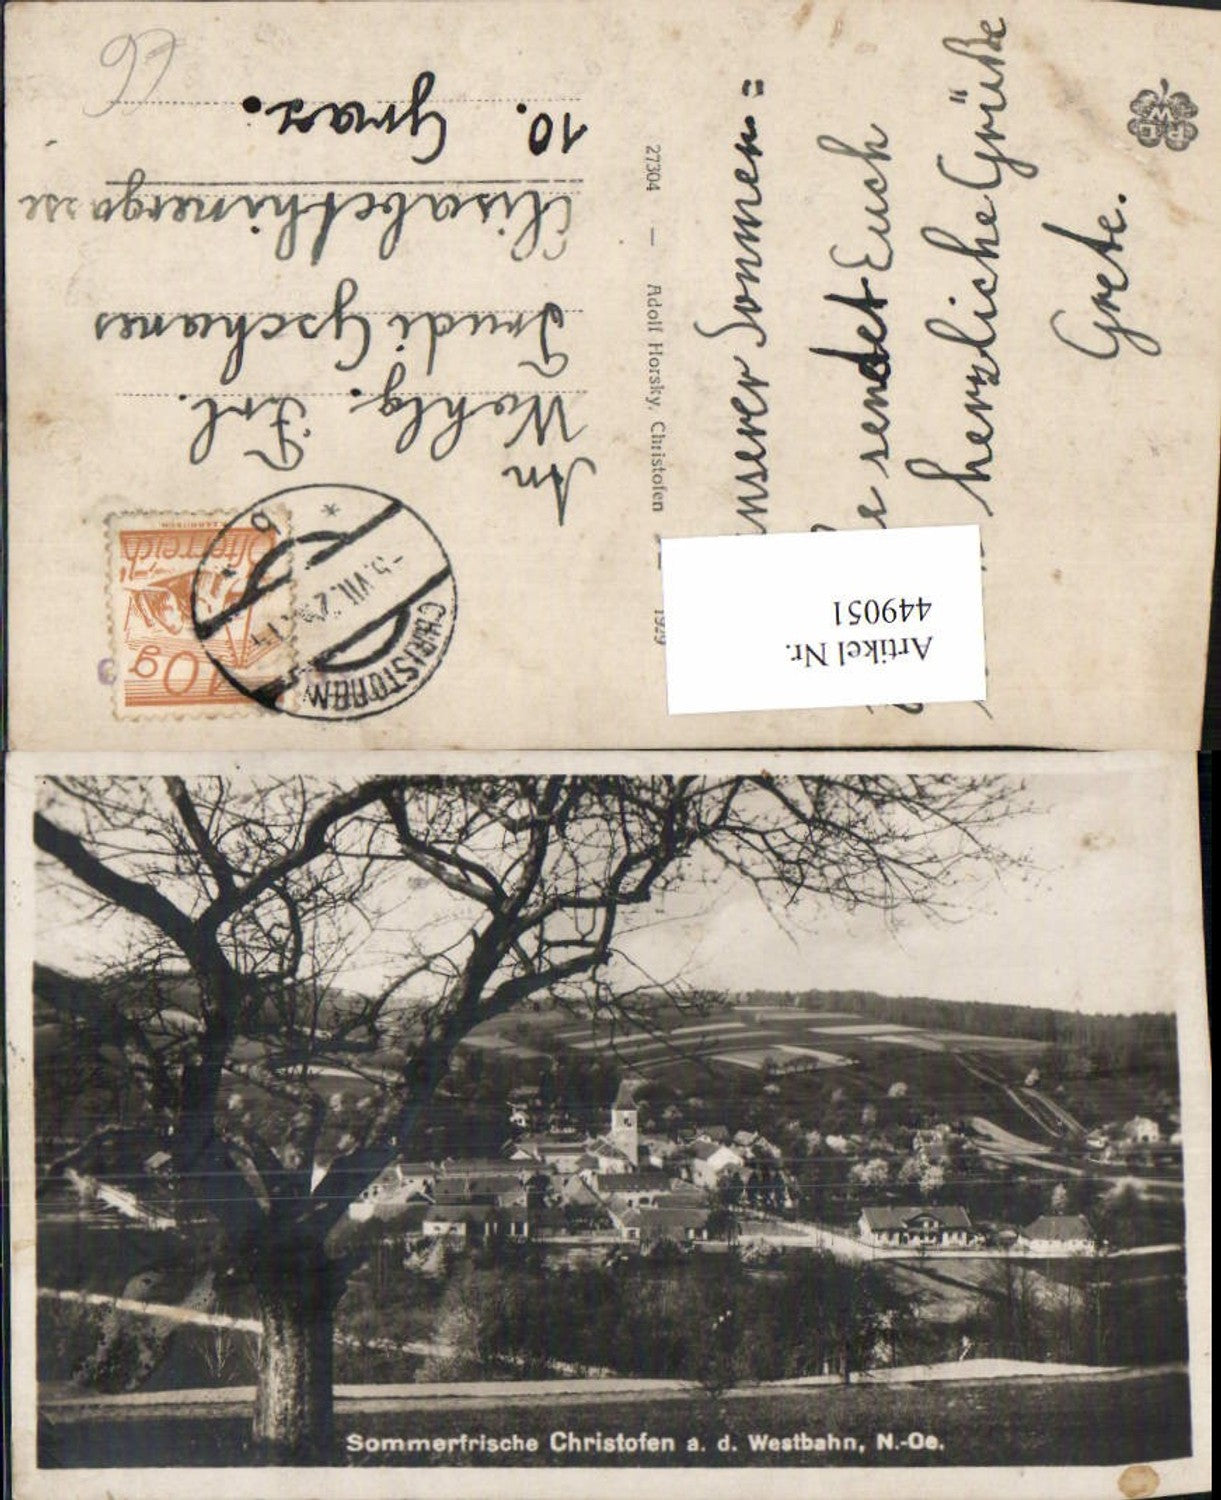 66
An
Wohlg. Frl.
Trudi Gschanes
Elisabethinergasse
10. Graz.
10g
Österreich
CHRISTOFEN
VII.
b
27304 — Adolf Horsky, Christofen
1929
unserer Sommer=
sendet Euch
herzliche Grüße
Grete.
Artikel Nr.
449051
Sommerfrische Christofen a. d. Westbahn, N.-Oe.